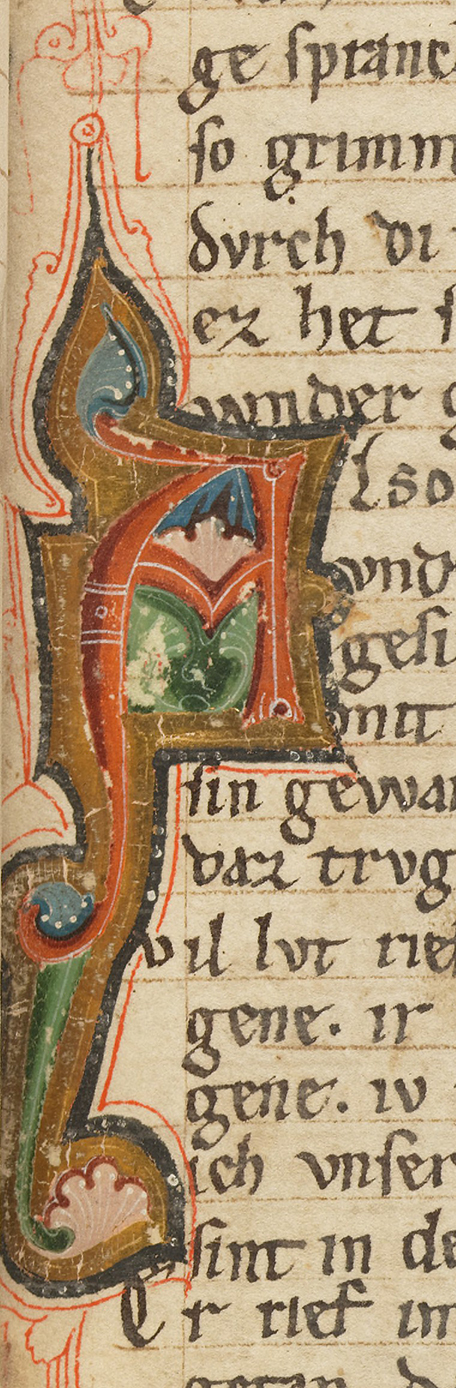 ge spranc
so grimm
dvrch di
er het s
wnder g
Also
wnd
gesi
mit
sin gewa
daz trvg
vil lvt rief
gene. ir
gene. iv
ich vnser
sint in de
Er rief im